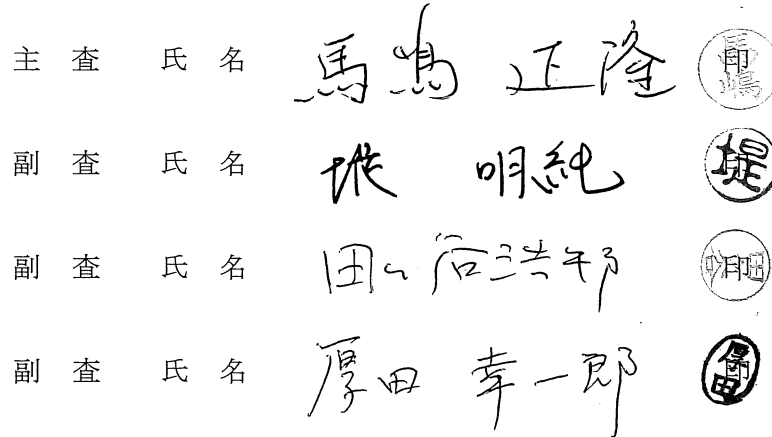 主査 氏名 馬嶋 正隆 印 馬嶋
副査 氏名 堤 明純 堤
副査 氏名 田ヶ谷浩邦 印
副査 氏名 厚田 幸一郎 印 厚田